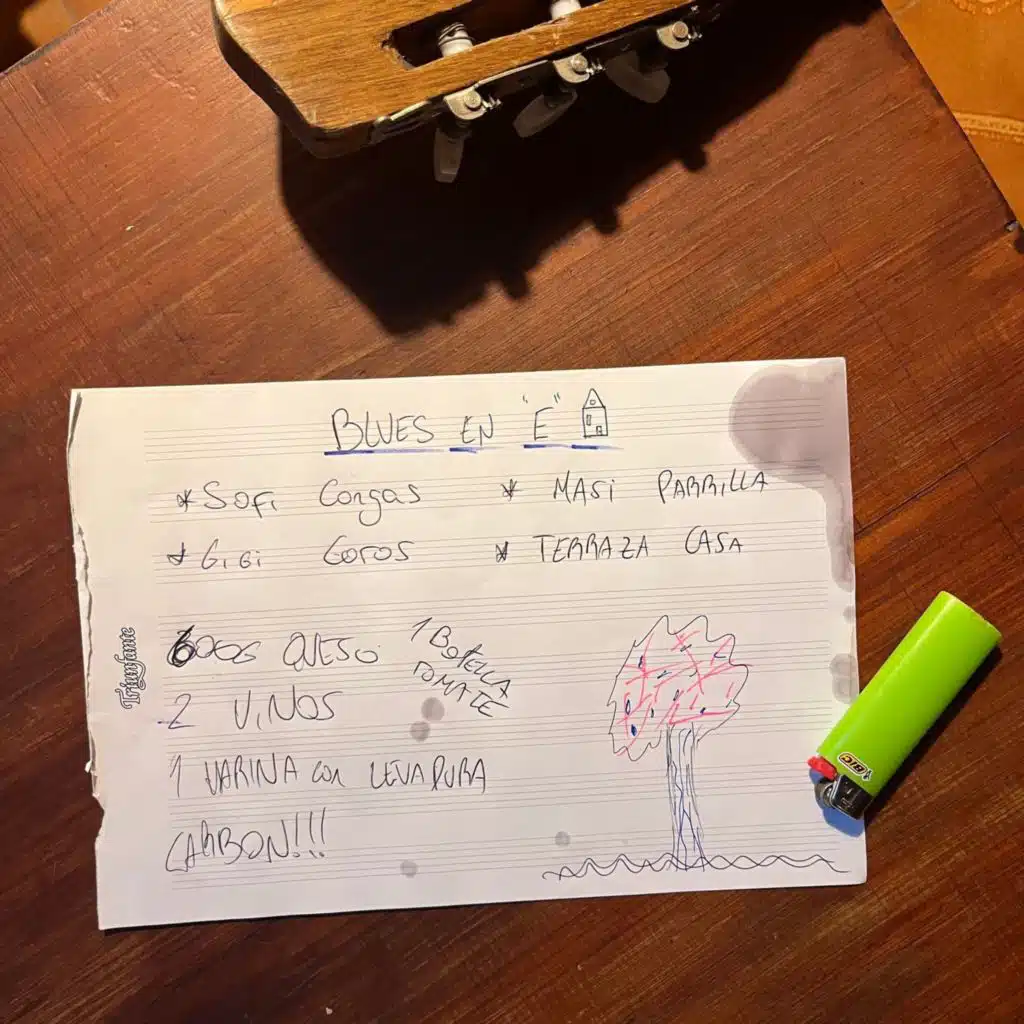 BLUES EN "E"
* SOFI Congas
* MASI PARRILLA
* GiGi Coros
* TERRAZA CASA
600G QUESO
1 BOTELLA
TOMATE
2 ViNOS
1 HARINA con LEVADURA
CARBON!!!
Triunfante
BIC